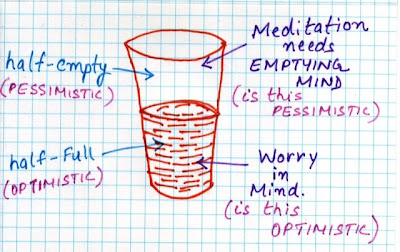 half-empty
(PESSIMISTIC)
half-Full
(OPTIMISTIC)
Meditation
needs
EMPTYING
MIND
(is this
PESSIMISTIC)
Worry
in
Mind.
(is this
OPTIMISTIC)